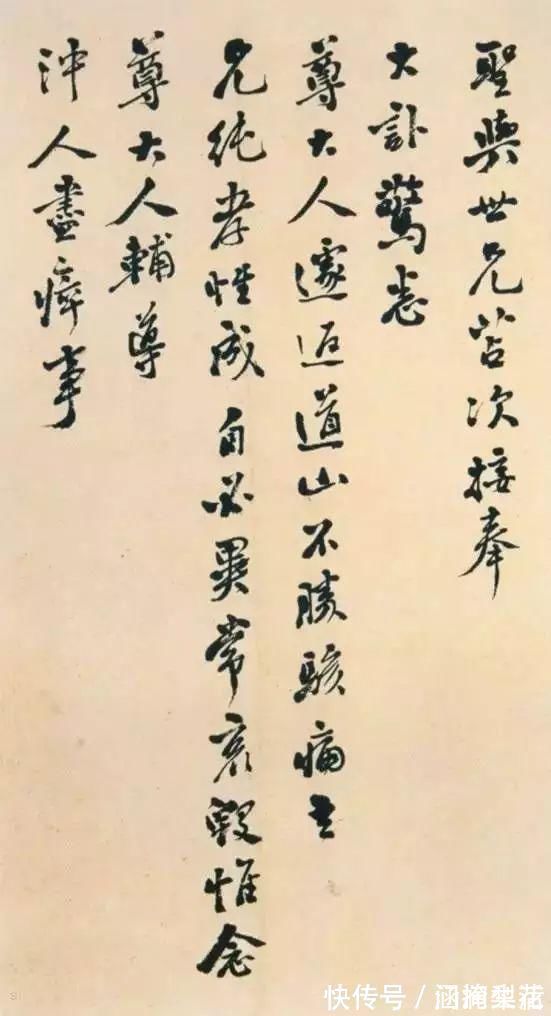 聖與世兄苫次接奉
大訃驚悉
尊大人遽返道山不勝駭痛吾
兄純孝性成自必異常哀毀惟念
尊大人輔導
沖人盡瘁事
快传号／涵掩梨花